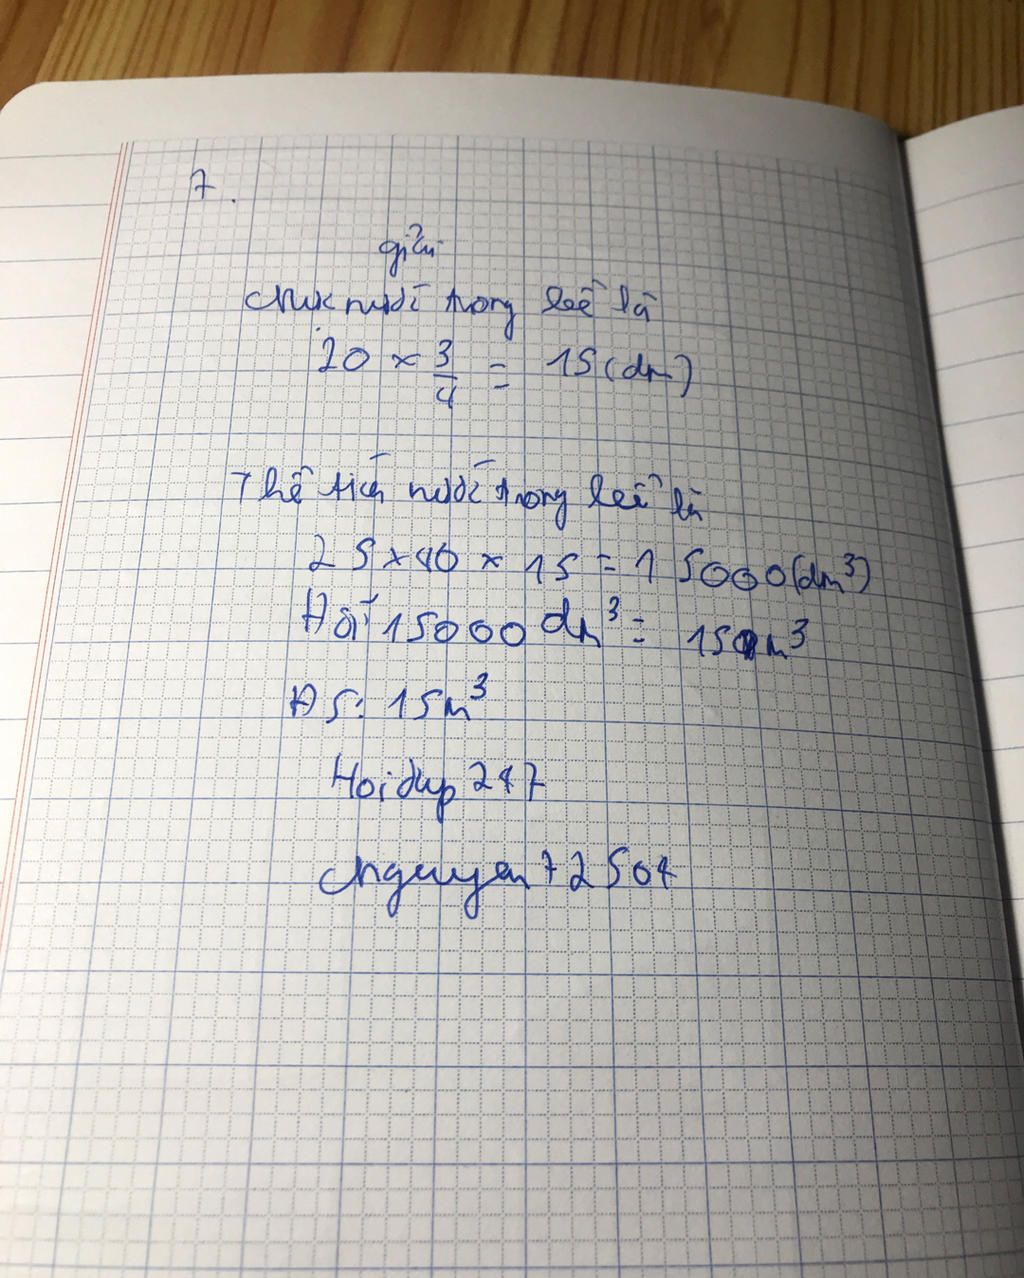 7.
giải
Mực nước trong bể là
20 × 3/4 = 15 (dm)
Thể tích nước trong bể là
25 × 40 × 15 = 15000 (dm³)
Đổi 15000 dm³ = 15 m³
ĐS: 15m³
Hoidap 247
Nguyen72504